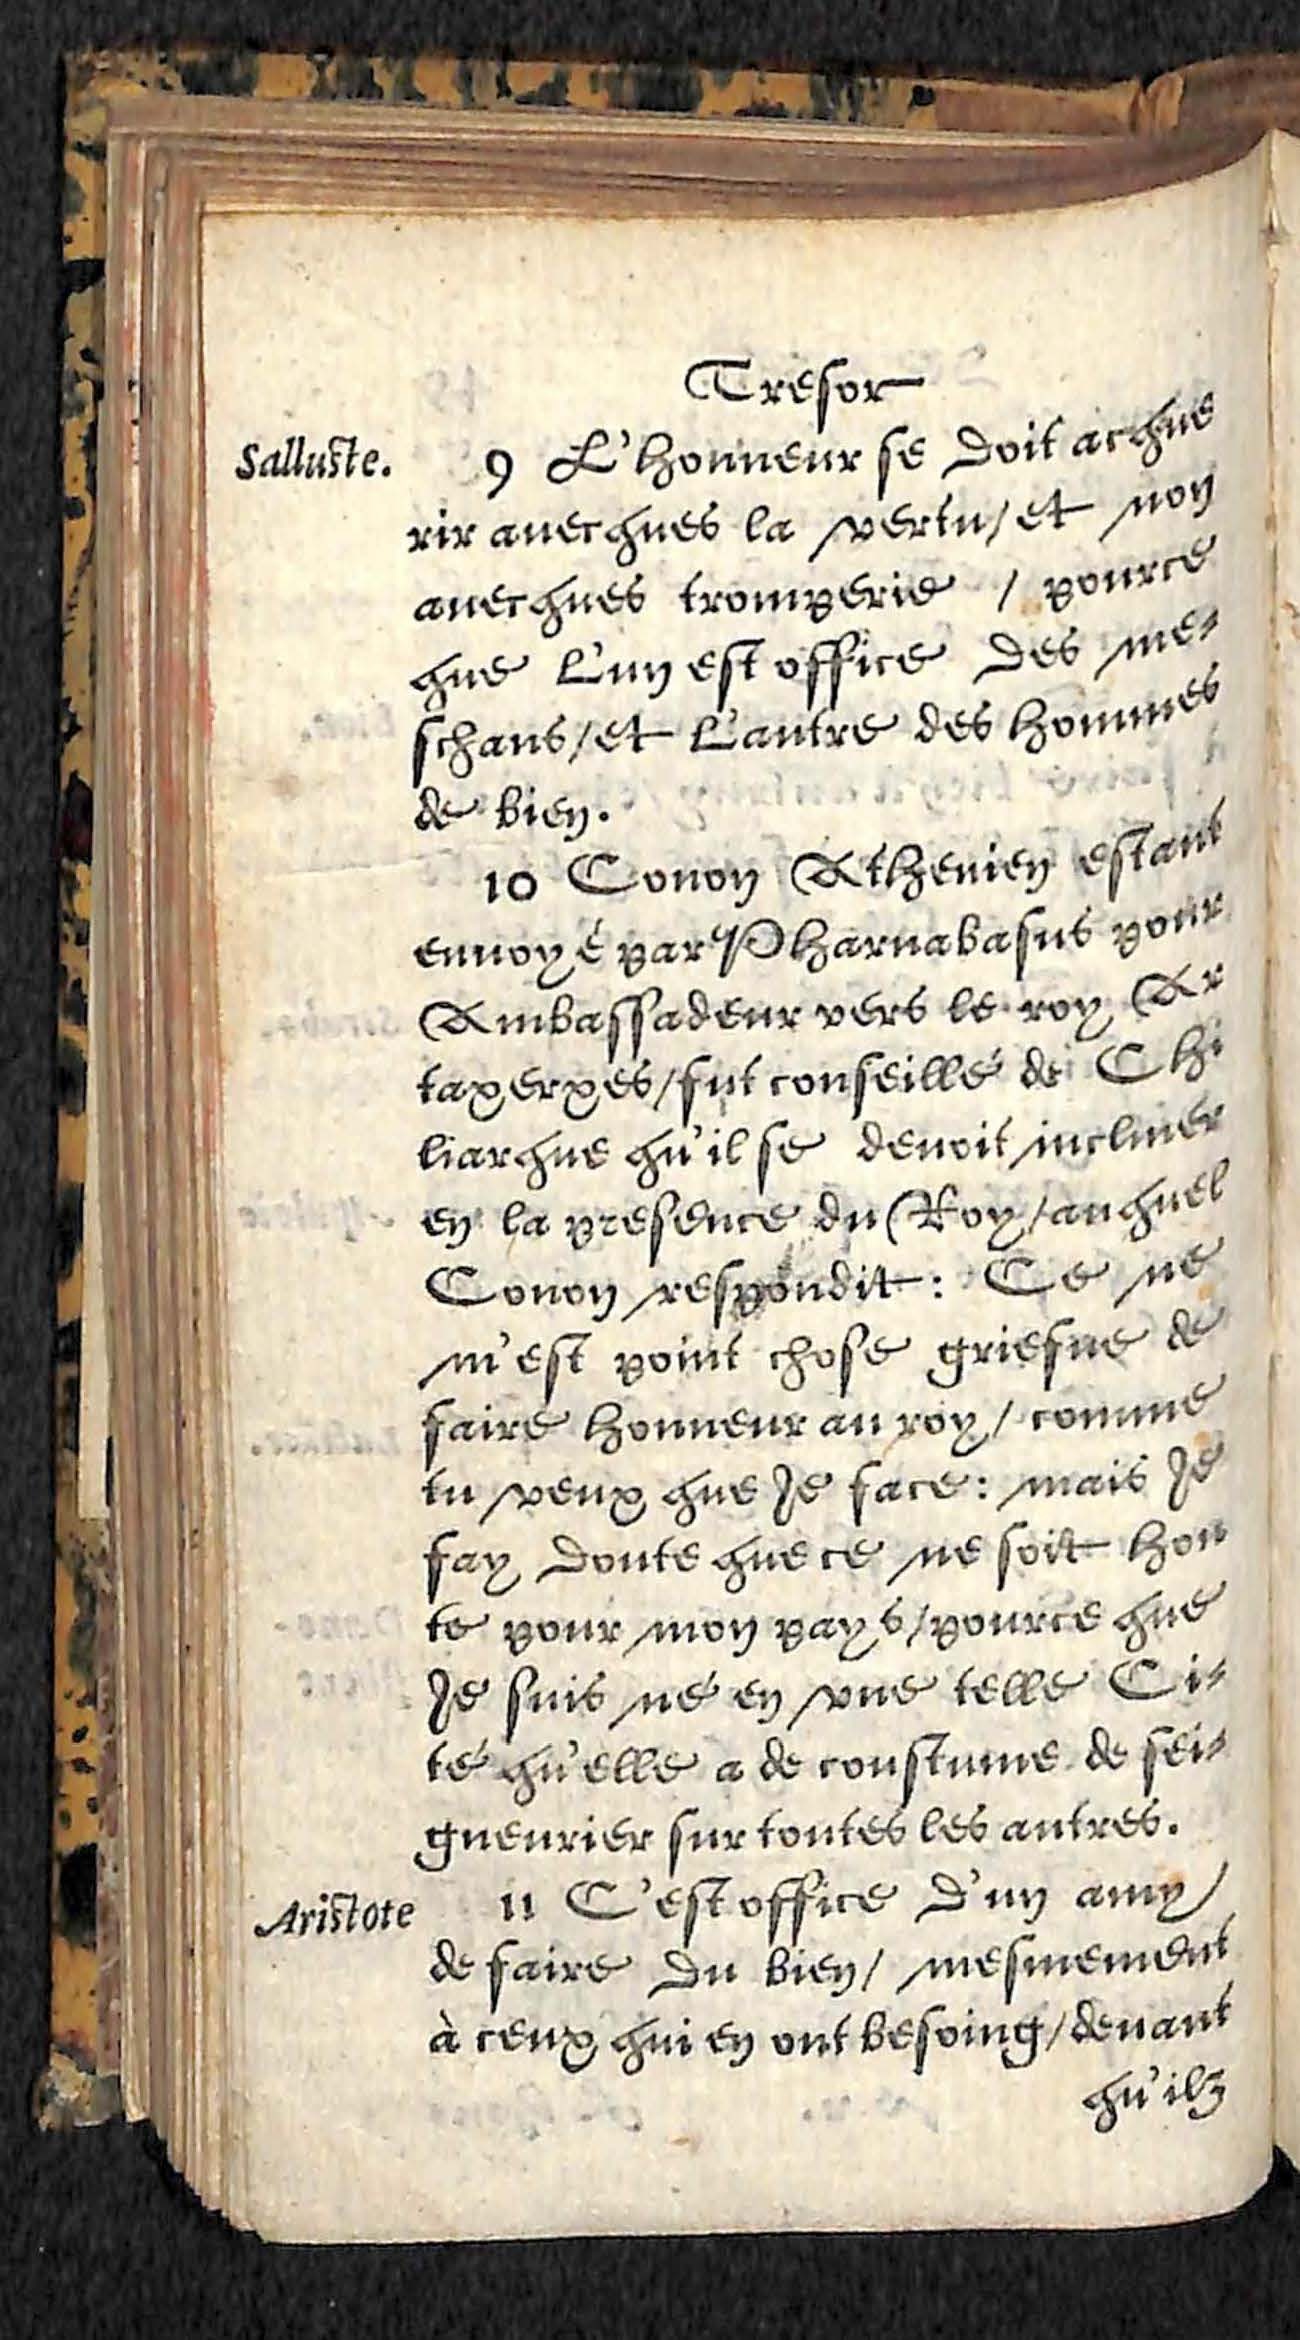 Tresor
Salluste. 9 L'honneur se doit acque
rir auecques la vertu/ et non
auecques tromperie / pource
que l'un est office des me-
schans/et l'autre des hommes
de bien.
10 Conon Athenien estant
enuoyé par Pharnabasus pour
Ambassadeur vers le roy Ar
taxerxes/fut conseillé de Chi
liarque qu'il se deuoit incliner
en la presence du Roy/auquel
Conon respondit: Ce ne
m'est point chose griefue de
faire honneur au roy/ comme
tu veux que Je face: mais Je
fay doute que ce ne soit hon
te pour mon pays/pource que
Je suis né en vne telle Ci-
té qu'elle a de coustume de sei-
gneurier sur toutes les autres.
Aristote 11 C'est office d'un amy/
de faire du bien/ mesmement
à ceux qui en ont besoing/deuant
qu'ilz